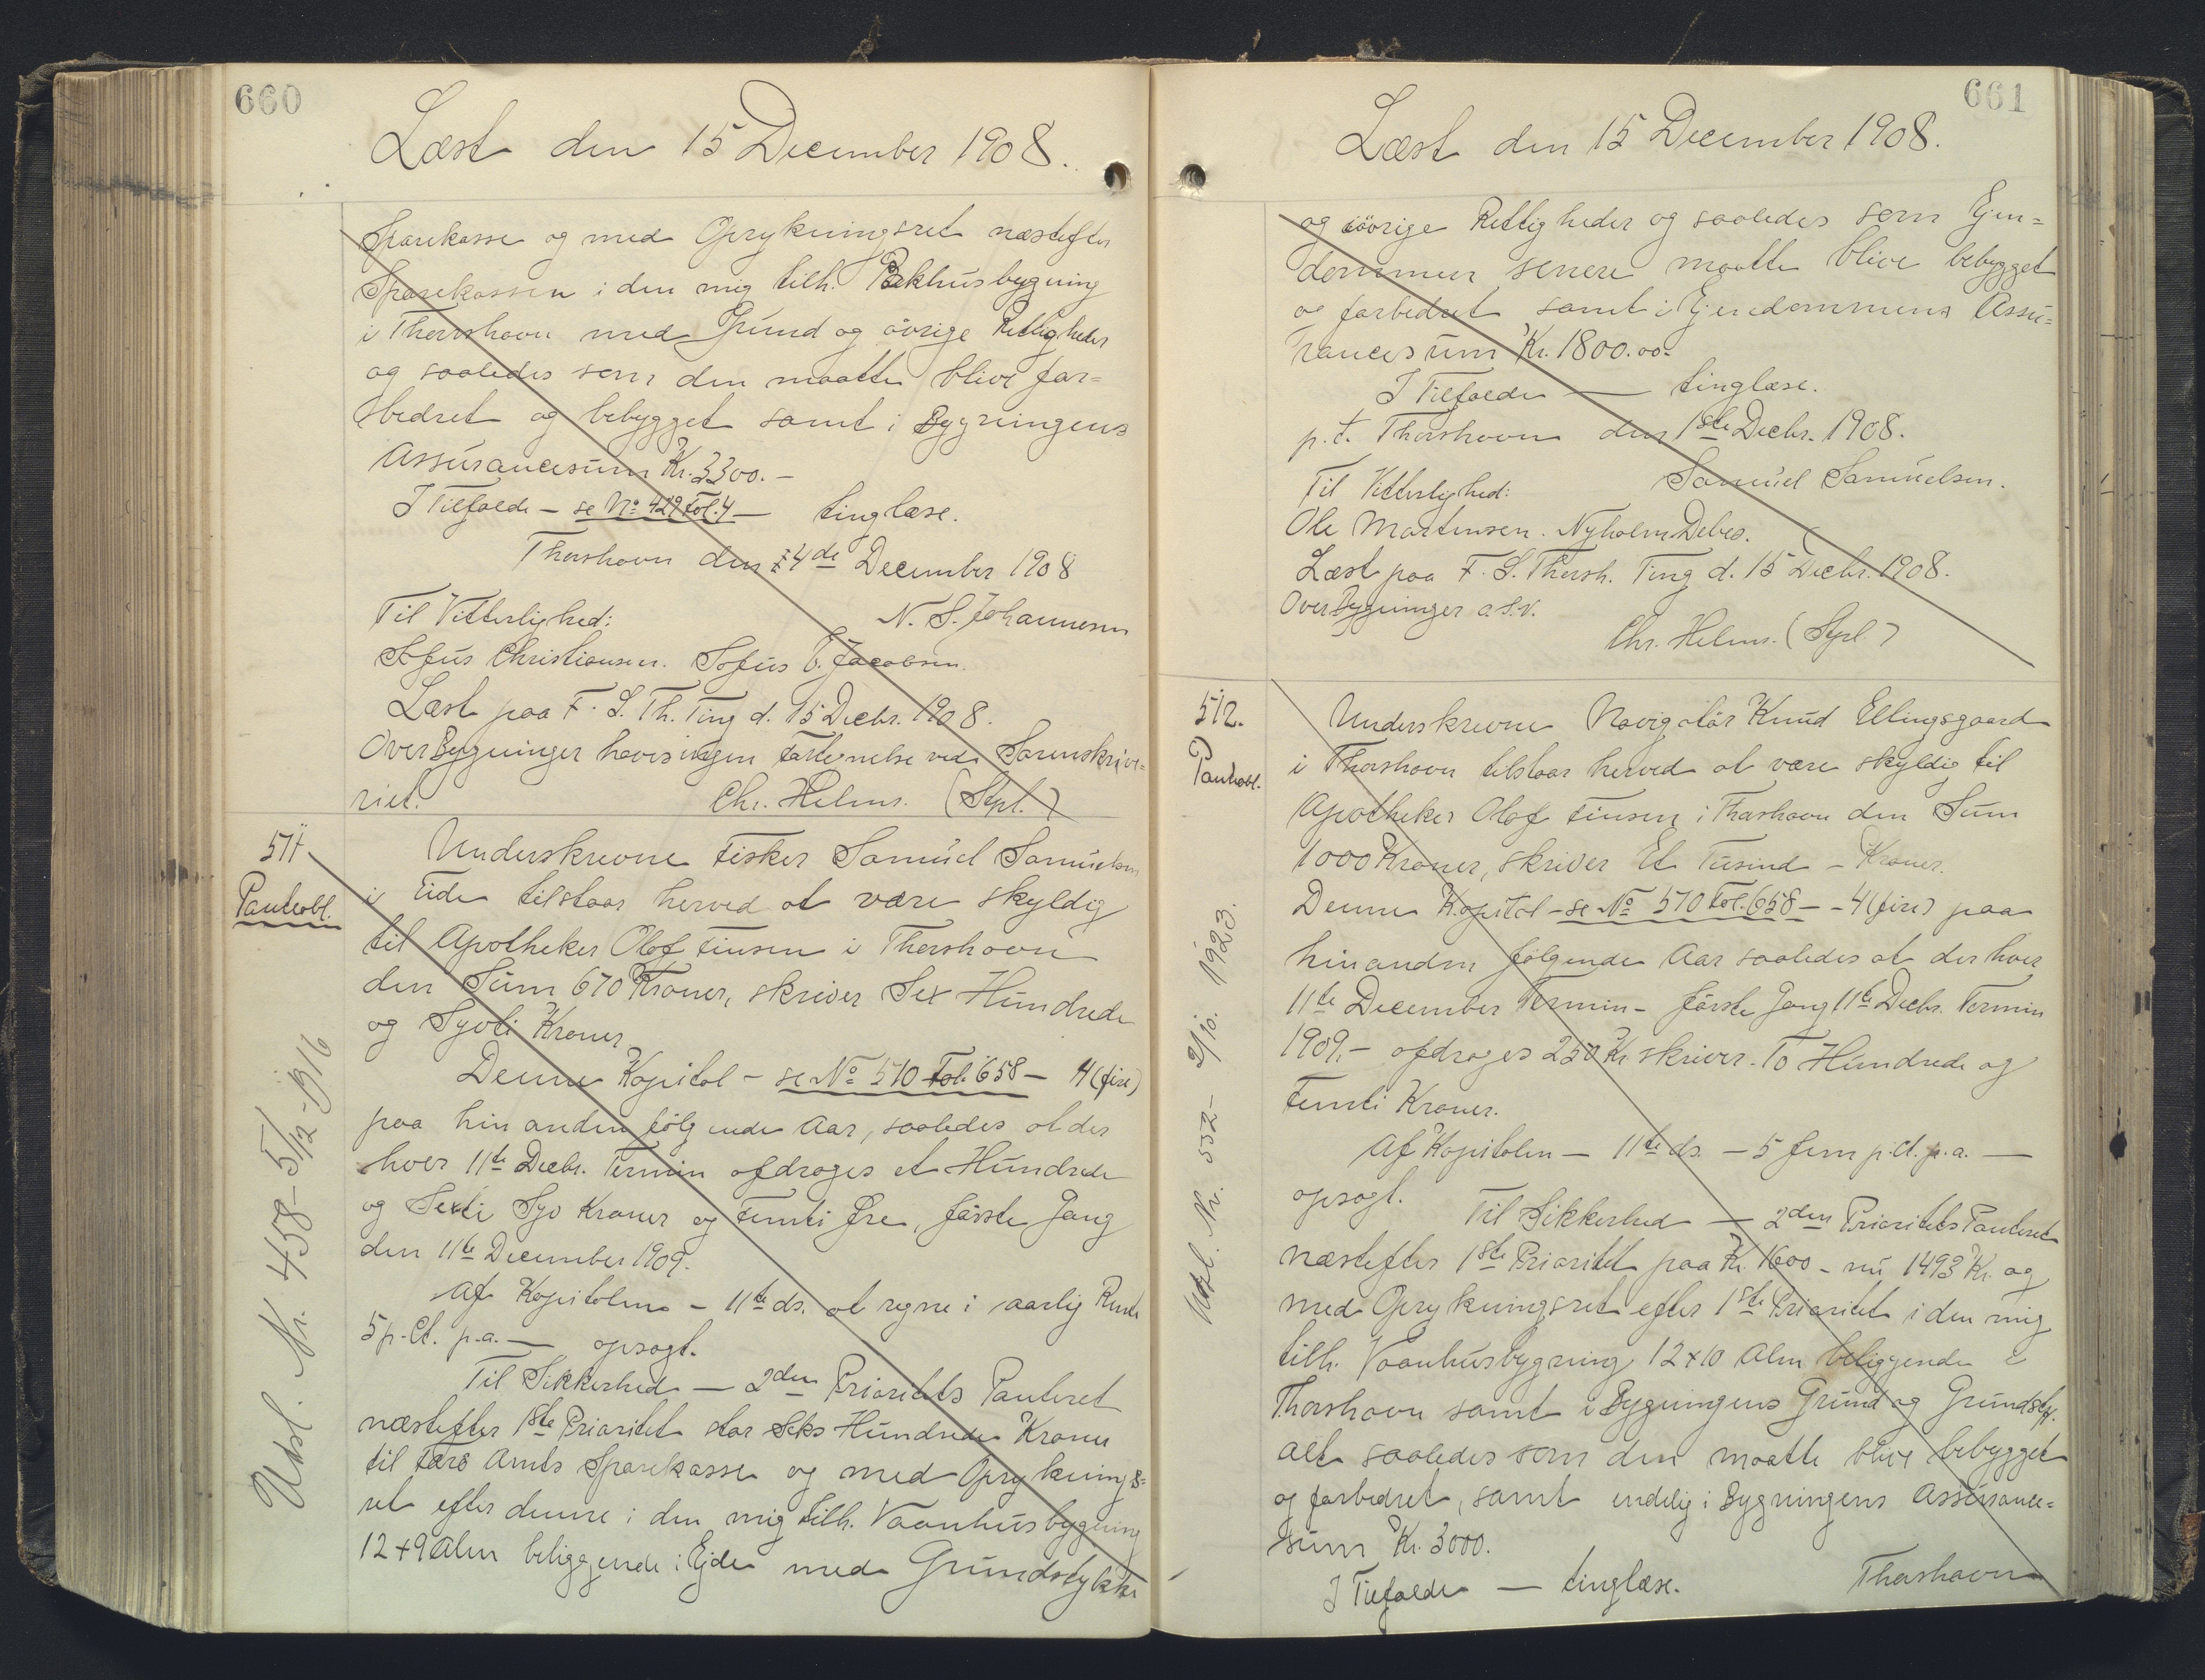 660
Læst den 15 December 1908.
Sparekasse og med Oprykningsret næstefter
Sparekassen i den mig tilh. Pakhusbygning
i Thorshavn med Grund og övrige Rettigheder
og saaledes som den maatte blive for-
bedret og bebygget samt i Bygningens
Assurancesum Kr. 3300.-
I Tilfælde - se No 429 Fol. 4 - tinglæse.
Thorshavn den 4de December 1908
Til Vitterlighed: N. S. Johannesen
Sofus Christiansen. Sofus E. Jacobsen.
Læst paa F. S. Th. Ting d. 15 Decbr. 1908.
Over Bygninger haves ingen Fortegnelse ved Sorenskrive-
riet. Chr. Helms. (Stpl.)
511
Panteobl.
Underskrevne Fisker Samuel Samuelsen
i Eide tilstaar herved at være skyldig
til Apotheker Olaf Finsen i Thorshavn
den Sum 670 Kroner, skriver Sex Hundrede
og Syvti Kroner
Denne Kapital - se No 510 Fol. 658 - 4 (fire)
paa hinanden følgende Aar, saaledes at der
hver 11te Decbr. Termin afdrages et Hundrede
og Sexti Syv Kroner og Femti Øre, første Gang
den 11te December 1909.
Af Kapitalen - 11te ds. at regne i aarlig Rente
5 p. Ct. p.a. - opsagt.
Til Sikkerhed - 2den Prioritets Panteret
næstefter 1ste Prioritet stor Seks Hundrede Kroner
til Færø Amts Sparekasse og med Opryknings-
ret efter denne i den mig tilh. Vaanhusbygning
12 + 9 Alen beliggende i Ejde med Grundstykke
Udsl. Nr. 458 - 5/12 - 1916
661
Læst den 15 December 1908.
og iövrige Rettigheder og saaledes som Ejen-
dommen senere maatte blive bebygget
og forbedret samt i Ejendommens Assu-
rancesum Kr. 1800.00-
I Tilfælde - tinglæse.
p.t. Thorshavn den 1ste Decbr. 1908.
Til Vitterlighed: Samuel Samuelsen.
Ole Mortensen. Nyholm Debes.
Læst paa F. S. Thorsh. Ting d. 15 Decbr. 1908.
Over Bygninger o.s.v.
Chr. Helms. (Stpl.)
512.
Panteobl.
Underskrevne Navigatör Knud Ellingsgaard
i Thorshavn tilstaar herved at være skyldig til
Apotheker Olaf Finsen i Thorshavn den Sum
1000 Kroner, skriver Et Tusind - Kroner.
Denne Kapital - se No 510 Fol. 658 - - 4 (fire) paa
hinanden følgende Aar saaledes at der hver
11te December Termin - første Gang 11te Decbr. Termin
1909. - afdrages 250 Kr skriver - To Hundrede og
Femti Kroner.
Af Kapitalen - 11te ds. - 5 fem p. Ct. p.a. -
opsagt.
Til Sikkerhed - 2den Prioritets Panteret
næstefter 1ste Prioritet paa Kr. 1600 - nu 1493 Kr. og
med Oprykningsret efter 1ste Prioritet i den mig
tilh. Vaanhusbygning 12 + 10 Alen beliggende i
Thorshavn samt i Bygningens Grund og Grundstk.
alt saaledes som den maatte blive bebygget
og forbedret, samt endelig i Bygningens Assurance-
sum Kr. 3000.
I Tilfælde - tinglæse. Thorshavn
Udsl. Nr. 552 - 2/10. 1923.